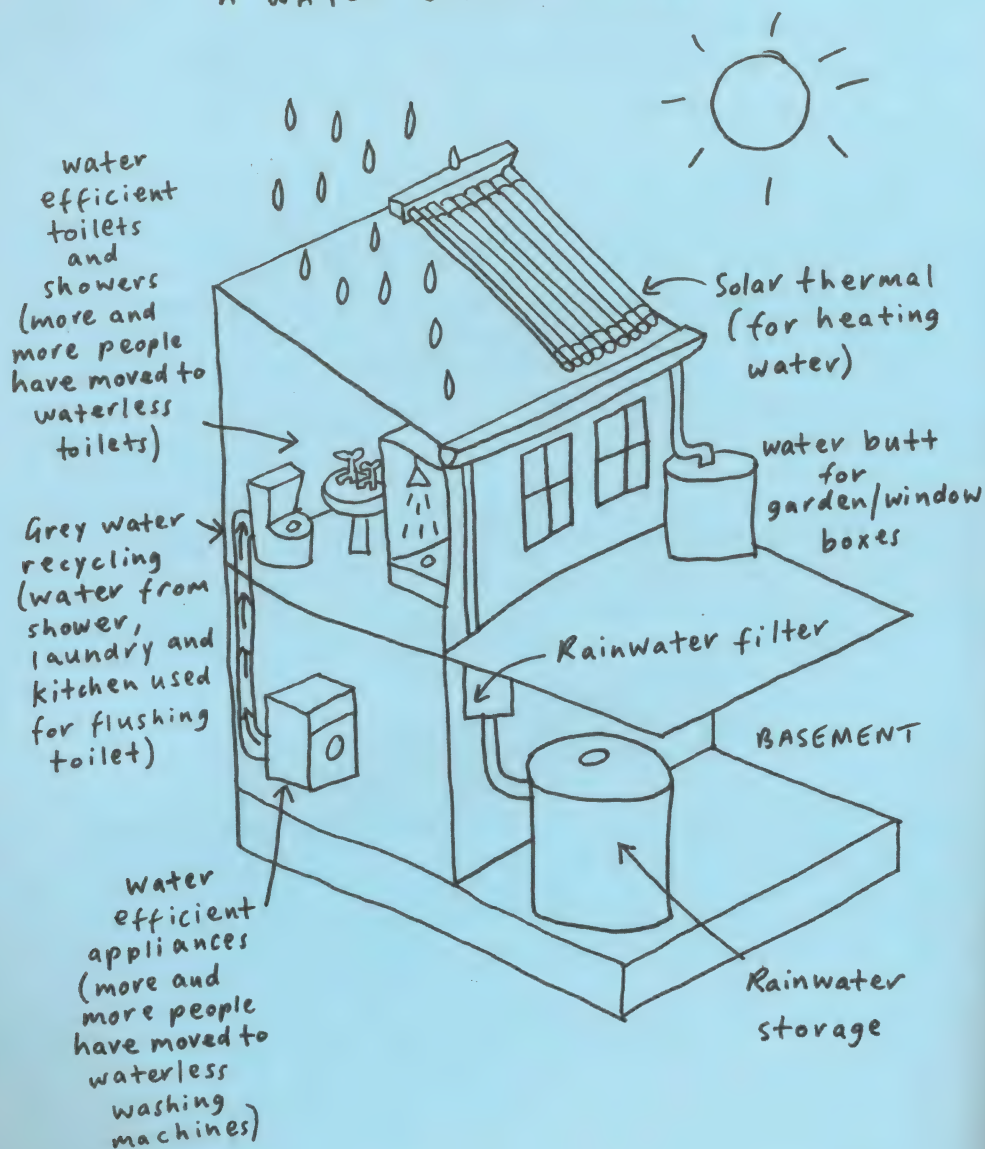 water
efficient
toilets
and
showers
(more and
more people
have moved to
waterless
toilets)
Solar thermal
(for heating
water)
water butt
for
garden/window
boxes
Grey water
recycling
(water from
shower,
laundry and
kitchen used
for flushing
toilet)
Rainwater filter
BASEMENT
Water
efficient
appliances
(more and
more people
have moved to
waterless
washing
machines)
Rainwater
storage